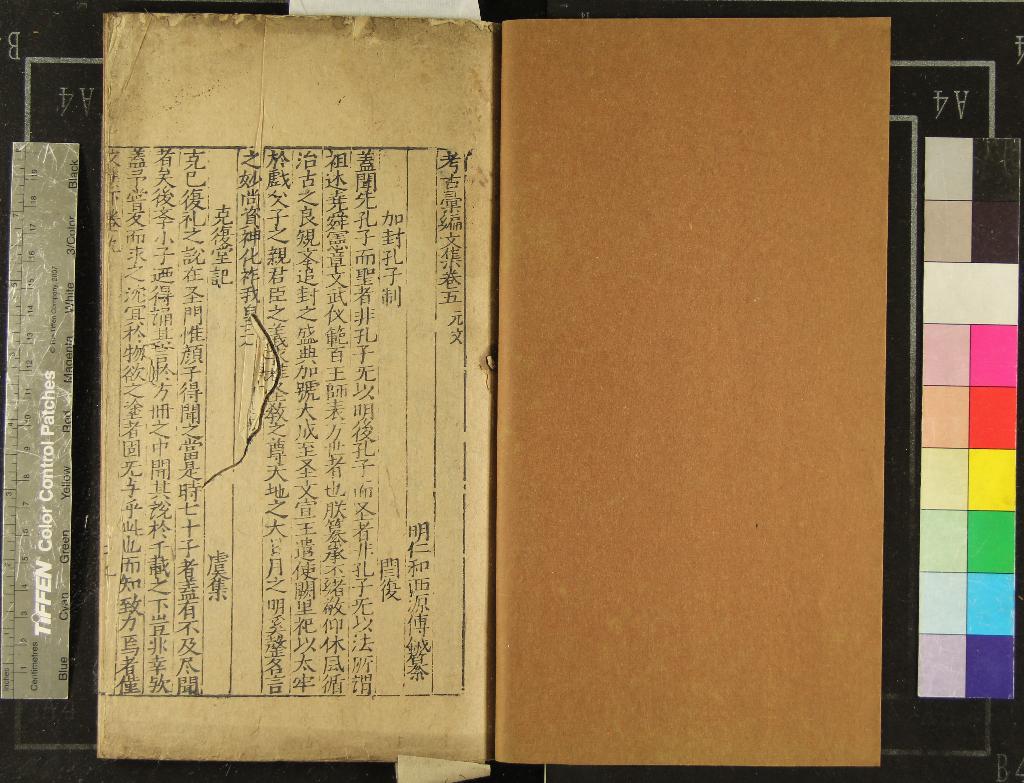 考古彙編文集卷五 元文
明仁和西源傅鉞纂
加封孔子制 閻復
蓋聞先孔子而聖者非孔子无以明後孔子而圣者非孔子无以法所謂
祖述堯舜憲章文武仪範百王師表万世者也朕纂承丕绪敬仰休風循
治古之良規举追封之盛典加號大成至圣文宣王遣使闕里祀以太牢
於戲父子之親君臣之義永惟圣教之尊天地之大日月之明奚罄名言
之妙尚資神化祚我皇元
克復堂記 虞集
克已復礼之說在圣門惟顏子得聞之當是時七十子者蓋有不及尽聞
者矣後李小子迺得誦其言於方冊之中聞其說於千載之下豈非幸欤
蓋予嘗及而求之沉冥於物欲之塗者固无与乎此也而知致力焉者僅
TIFFEN Color Control Patches
© The Tiffen Company, 2007
Inches
Centimetres
Blue Cyan Green Yellow Red Magenta White 3/Color Black
A4
A4
B4